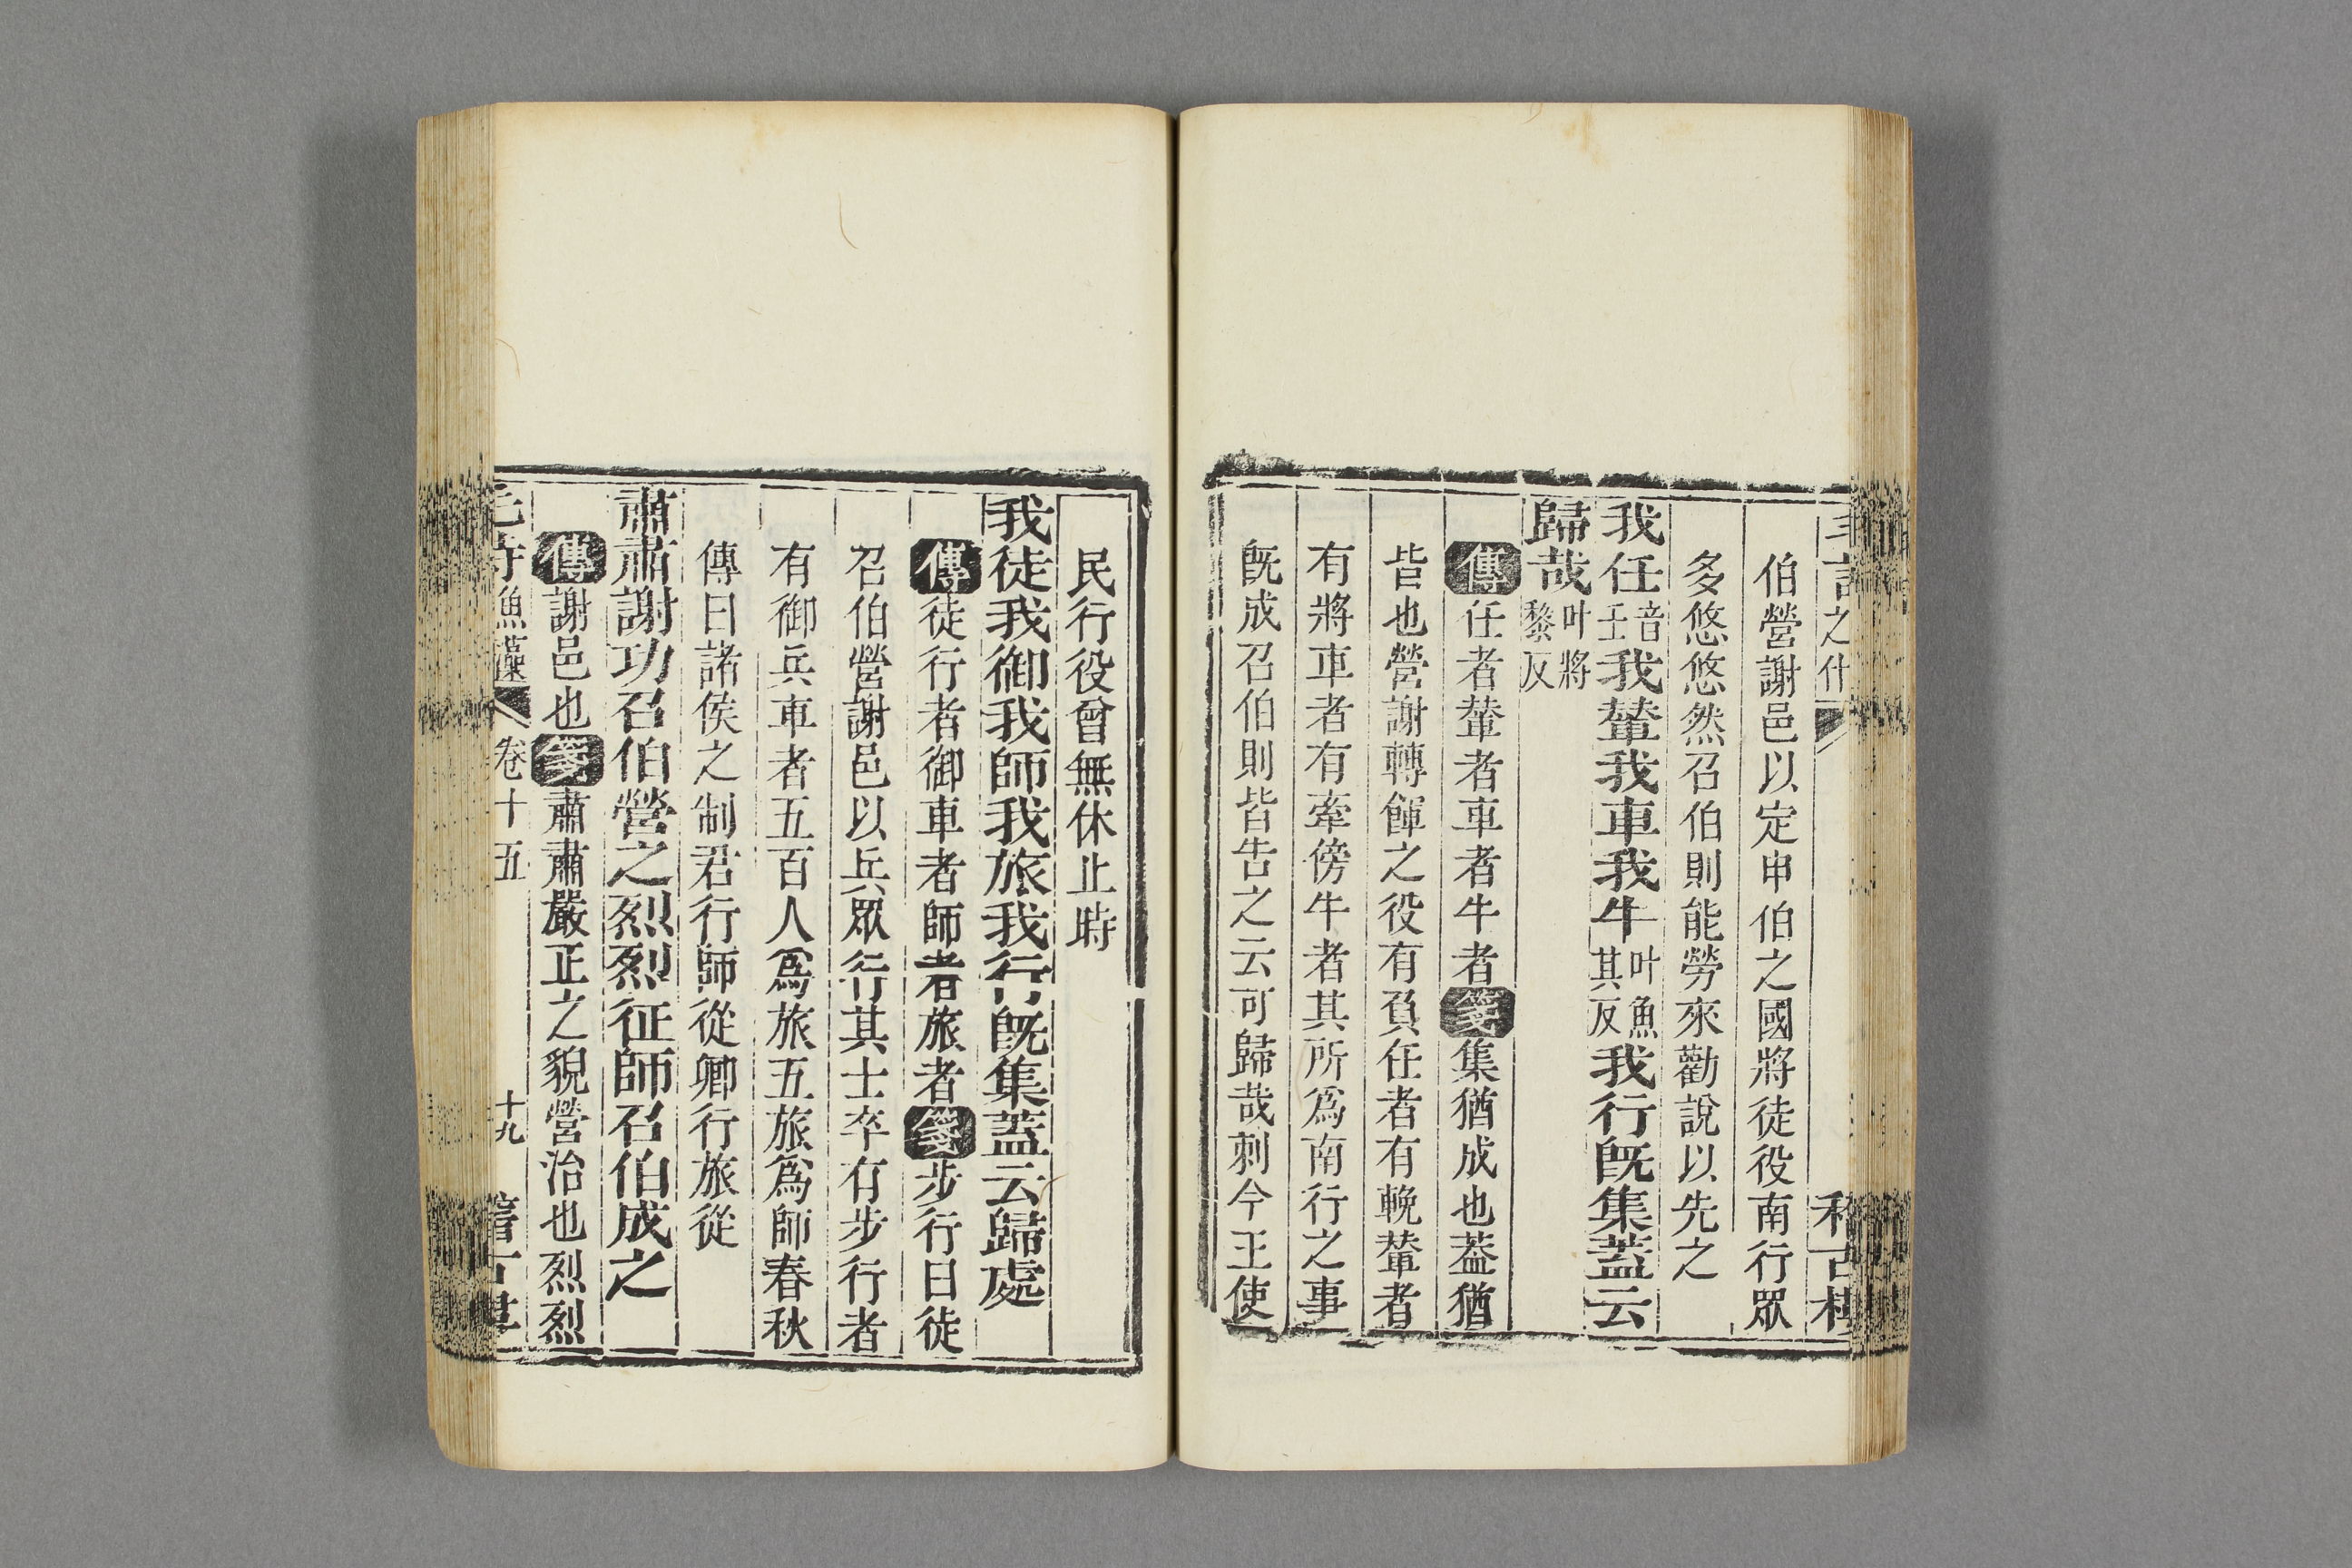 伯營謝邑以定申伯之國將徒役南行眾
多悠悠然召伯則能勞來勸說以先之
我任音壬我輦我車我牛叶魚其反我行旣集蓋云
歸哉叶將黎反
傳任者輦者車者牛者箋集猶成也葢猶
皆也營謝轉餫之役有負任者有輓輦者
有將車者有牽傍牛者其所爲南行之事
旣成召伯則皆告之云可歸哉刺今王使
民行役曾無休止時
我徒我御我師我旅我行旣集蓋云歸處
傳徒行者御車者師者旅者箋步行曰徒
召伯營謝邑以兵眾行其士卒有步行者
有御兵車者五百人爲旅五旅爲師春秋
傳曰諸侯之制君行師從卿行旅從
肅肅謝功召伯營之烈烈征師召伯成之
傳謝邑也箋肅肅嚴正之貌營治也烈烈
魚藻 卷十五 十九